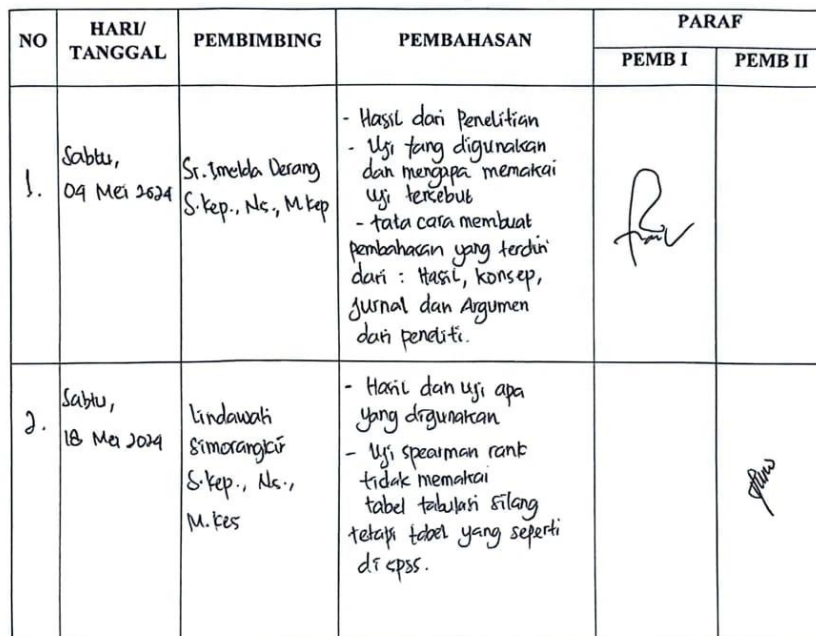 NO
HARI/
TANGGAL
PEMBIMBING
PEMBAHASAN
PARAF
PEMB I
PEMB II
1.
Sabtu,
04 Mei 2024
Sr. Imelda Derang
S.kep., Ns., M.kep
- Hasil dari Penelitian
- Uji yang digunakan
dan mengapa memakai
uji tersebut
- tata cara membuat
pembahasan yang terdiri
dari : Hasil, konsep,
Jurnal dan Argumen
dari peneliti.
2.
Sabtu,
18 Mei 2024
Lindawati
Simorangkir
S.kep., Ns.,
M.kes
- Hasil dan uji apa
yang digunakan
- Uji spearman rank
tidak memakai
tabel tabulasi silang
tetapi tabel yang seperti
di spss.